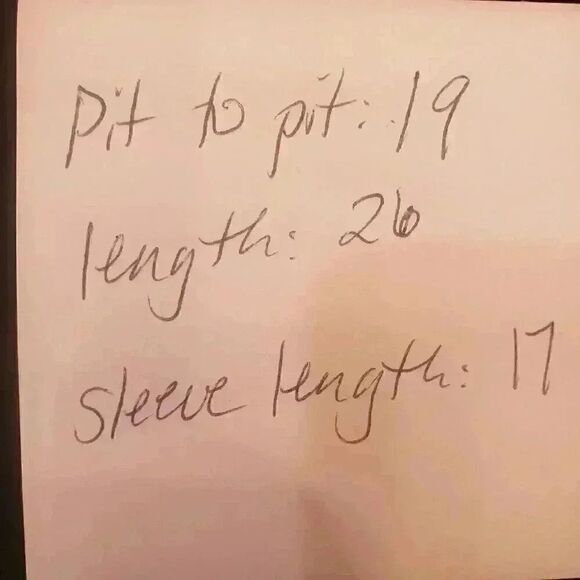 Pit to pit: 19
length: 26
sleeve length: 17